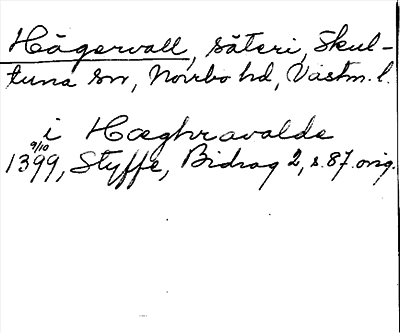 Hägervall, säteri, Skul-
tuna sn, Norrbo hd, Västm. l.
i Hæghravalde
1399, 9/10 Styffe, Bidrag 2, s. 87. orig.